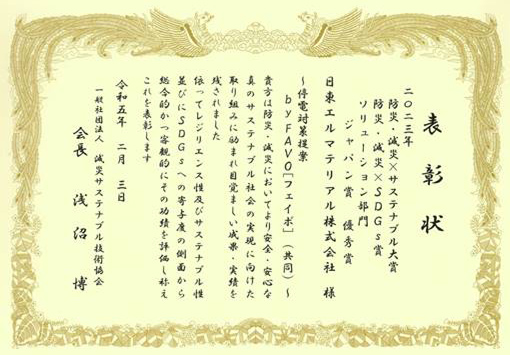 表彰状
二〇二三年
防災・減災×サステナブル大賞
防災・減災×SDGs賞
ソリューション部門
ジャパン賞 優秀賞
日東エルマテリアル株式会社 様
～停電対策提案
by FAVO[フェイボ]（共同）～
貴方は防災・減災においてより安全・安心な
真のサステナブル社会の実現に向けた
取り組みに励まれ目覚ましい成果・実績を
残されました
依ってレジリエンス性及びサステナブル性
並びにSDGsへの寄与度の側面から
総合的かつ客観的にその功績を評価し称え
これを表彰します
令和五年 二月 三日
一般社団法人 減災サステナブル技術協会
会長 浅沼 博